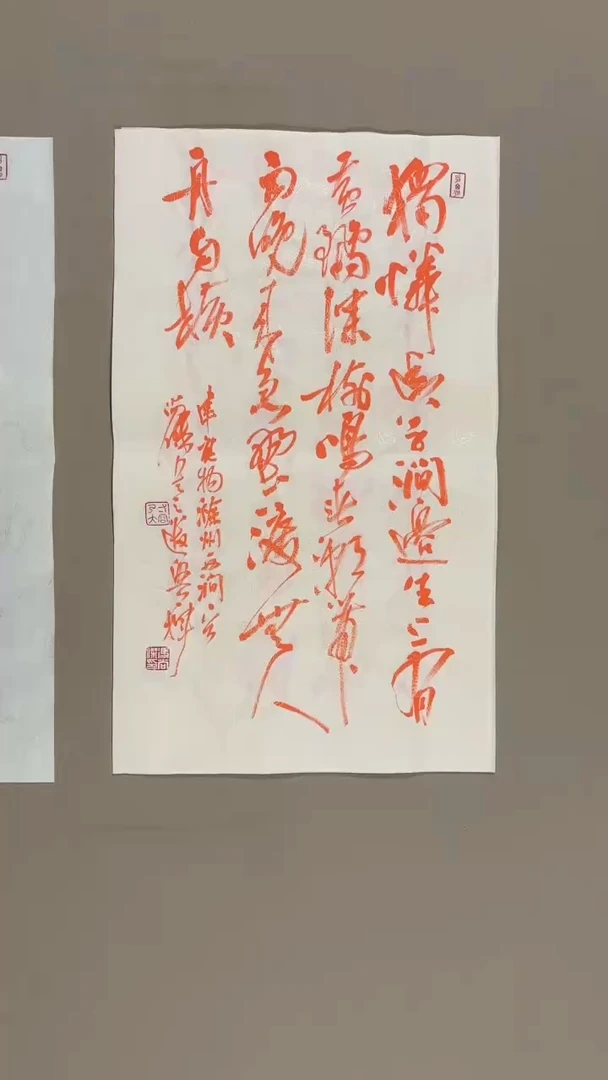 獨憐幽草澗邊生上有
黃鸝深樹鳴春潮帶
雨晚來急野渡無人
舟自橫
韋應物滁州西澗